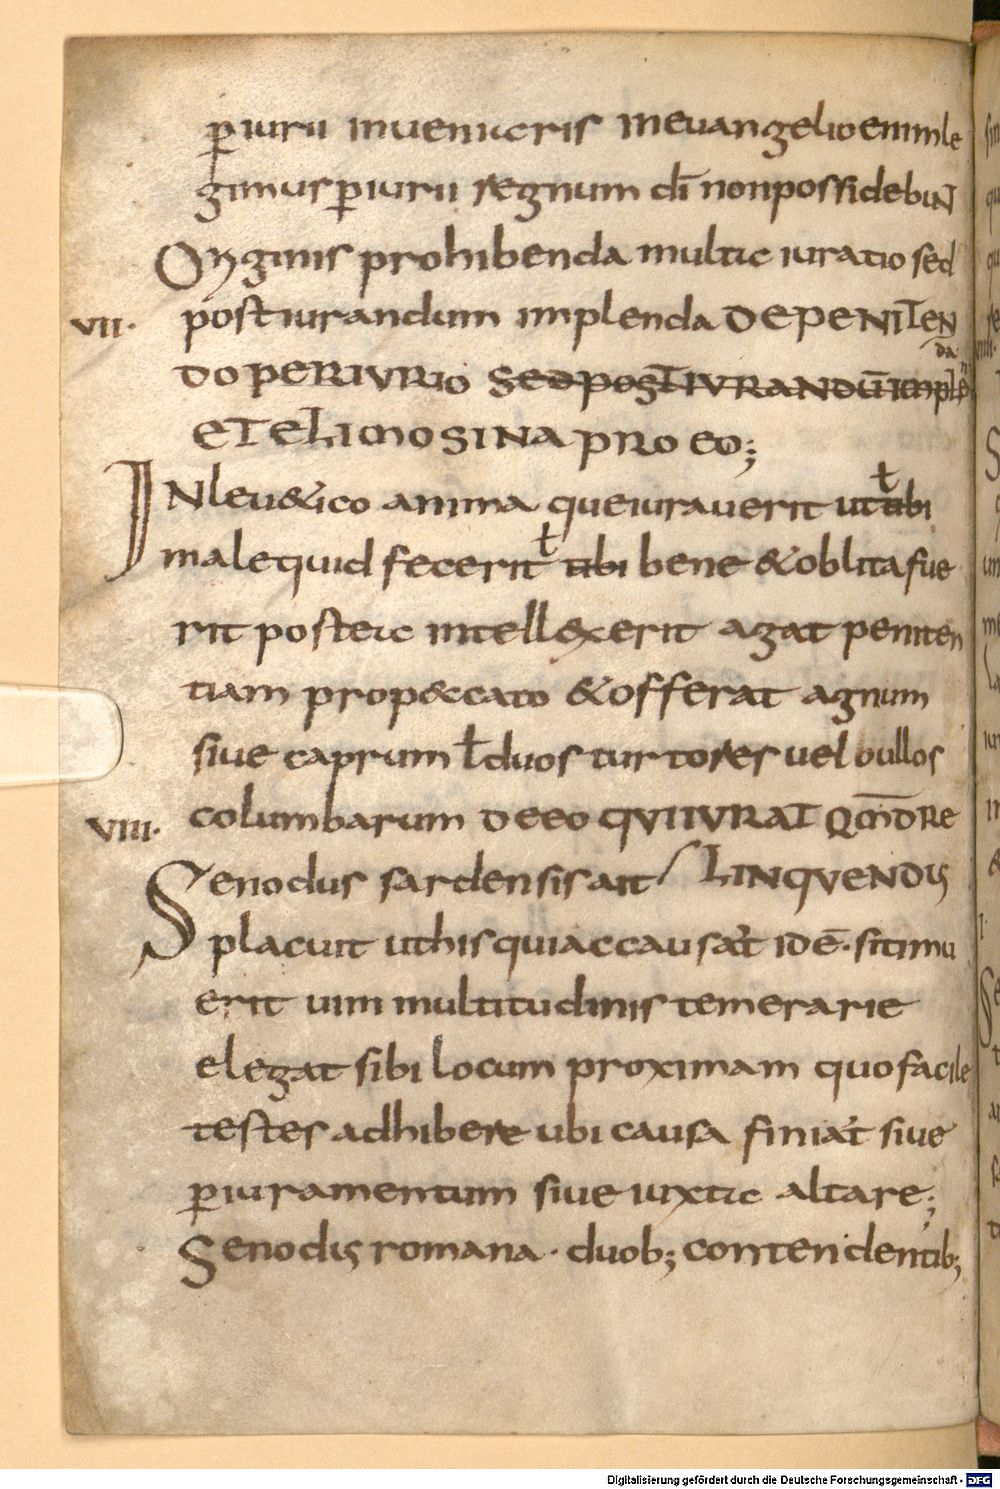 p̲iurii inueniteris ineuangelio enimle
gimus p̲iurii regnum dī non possidebuN
Origenis prohibenda multa iuratio sed
VII· post iurandum implenda DEPENITEN
da
DO PERIURIO SED POST IURANDŪ IMPLEN
ET ELIMOSINA PRO EO;
IN leu&ico anima que iurauerit ut ubi
ł
male quid fecerit ubi bene & oblita fue
ł
rit postea intell&xerit agat peniten
tiam prop&cato & offerat agnum
siue caprum ł duos turtores uel bullos
VIII· columbarum DEEO QVI IURAT Q̄M̄DRE
Senodus sardensis ait / LINQVENDIS
placuit uthis quiaccausat idē· si timu
erit uim multitudinis temerarie
elegat sibi locum proximam quo facile
testes adhibere ubi causa finiat siue
p̲iuramentum siue iuxta altare;
Senodis romana· duob; contendentib;
Digitalisierung gefördert durch die Deutsche Forschungsgemeinschaft - DFG